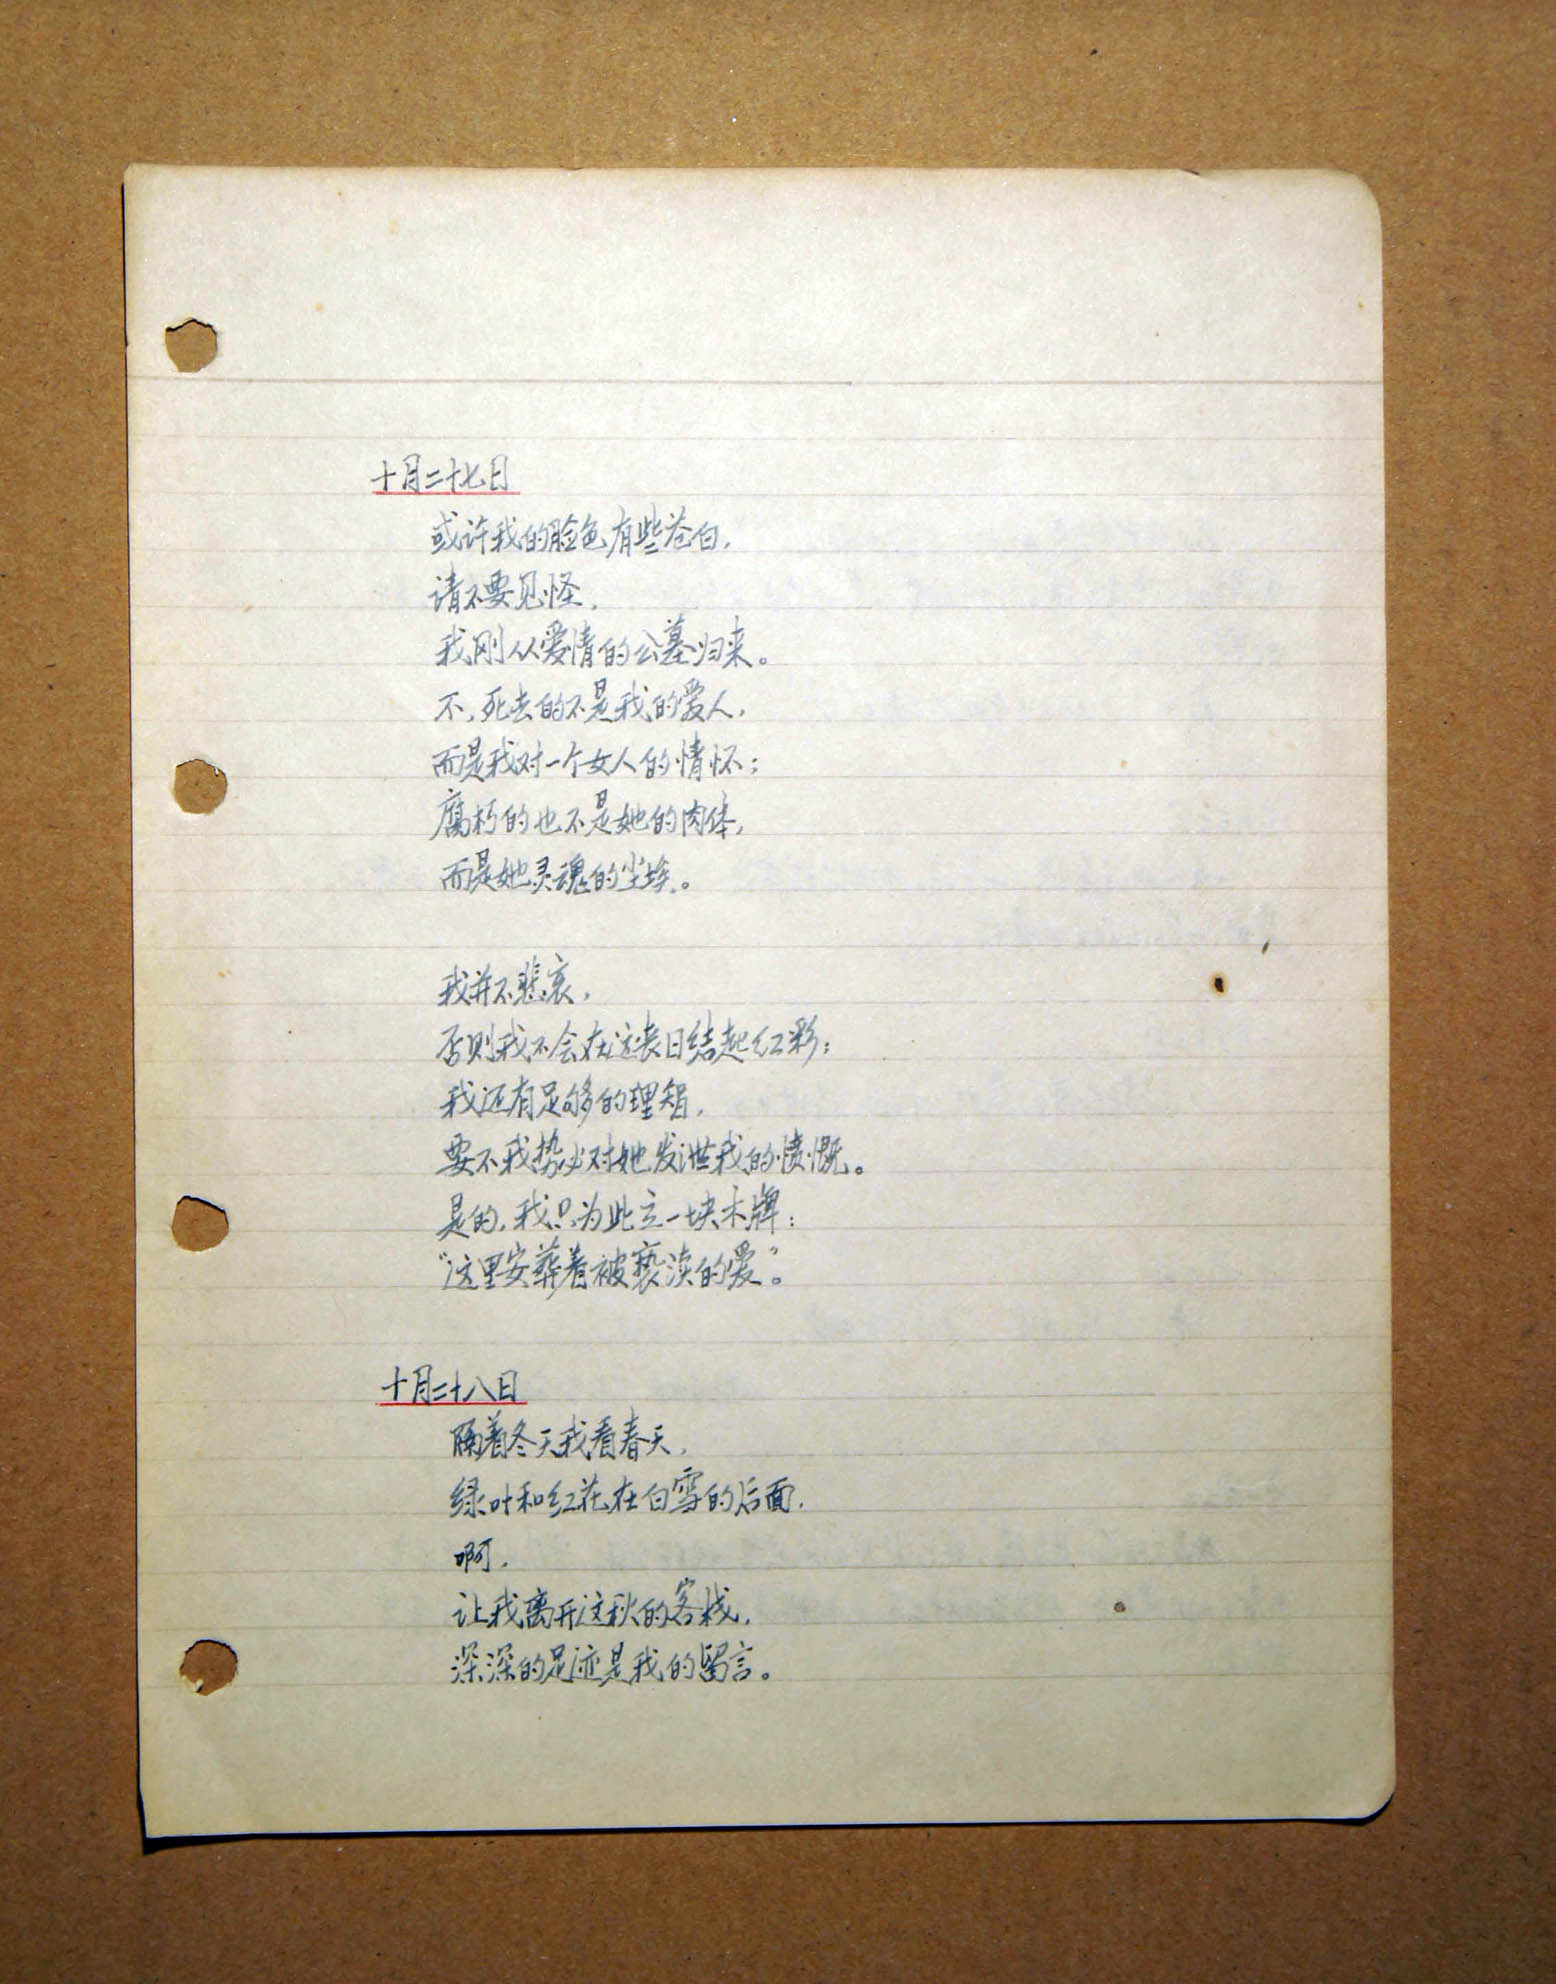 十月二十七日
或许我的脸色有些苍白,
请不要见怪,
我刚从爱情的公墓归来。
不,死去的不是我的爱人,
而是我对一个女人的情怀;
腐朽的也不是她的肉体,
而是她灵魂的尘埃。
我并不悲哀,
否则我不会在这丧日结起红彩;
我还有足够的理智,
要不我势必对她发泄我的愤慨。
是的,我只为此立一块木牌:
“这里安葬着被亵渎的爱”。
十月二十八日
隔着冬天我看春天,
绿叶和红花在白雪的后面,
啊,
让我离开这秋的客栈,
深深的足迹是我的留言。